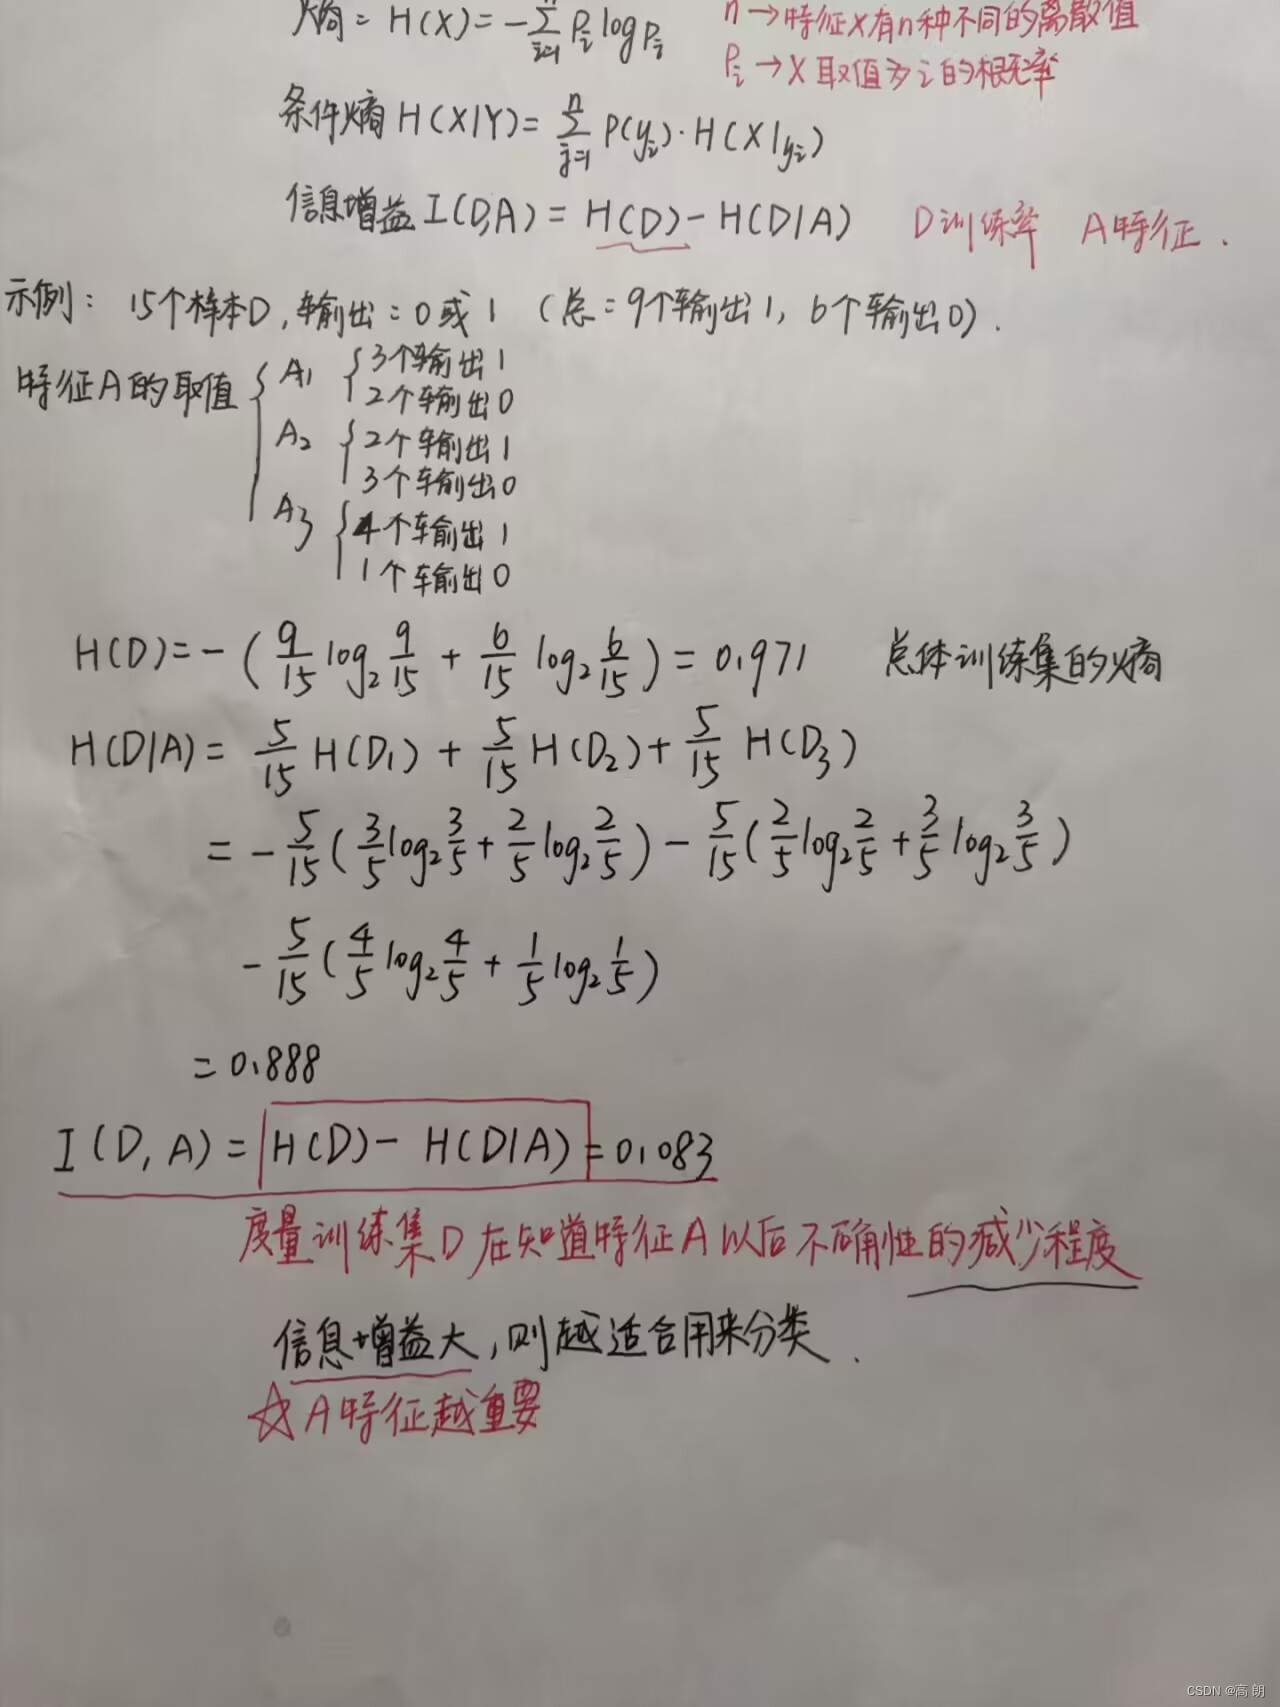 熵 = H(X) = -∑ᵢ₌₁ⁿ Pᵢ log Pᵢ n→特征X有n种不同的离散值
Pᵢ→X取值为i的概率
条件熵 H(X|Y) = ∑ⱼ₌₁ⁿ P(yᵢ)·H(X|yᵢ)
信息增益 I(D,A) = H(D) - H(D|A) D训练率 A特征.
示例: 15个样本D, 输出:0或1 (总:9个输出1, 6个输出0).
特征A的取值 { A₁ { 3个输出1
2个输出0
A₂ { 2个输出1
3个输出0
A₃ { 4个输出1
1个输出0
H(D) = -(9/15 log₂ 9/15 + 6/15 log₂ 6/15) = 0.971 总体训练集的熵
H(D|A) = 5/15 H(D₁) + 5/15 H(D₂) + 5/15 H(D₃)
= -5/15 (3/5 log₂ 3/5 + 2/5 log₂ 2/5) - 5/15 (2/5 log₂ 2/5 + 3/5 log₂ 3/5)
-5/15 (4/5 log₂ 4/5 + 1/5 log₂ 1/5)
= 0.888
I(D,A) = H(D) - H(D|A) = 0.083
度量训练集D在知道特征A以后不确性的减少程度
信息增益大,则越适合用来分类.
☆A特征越重要
CSDN @高 朗